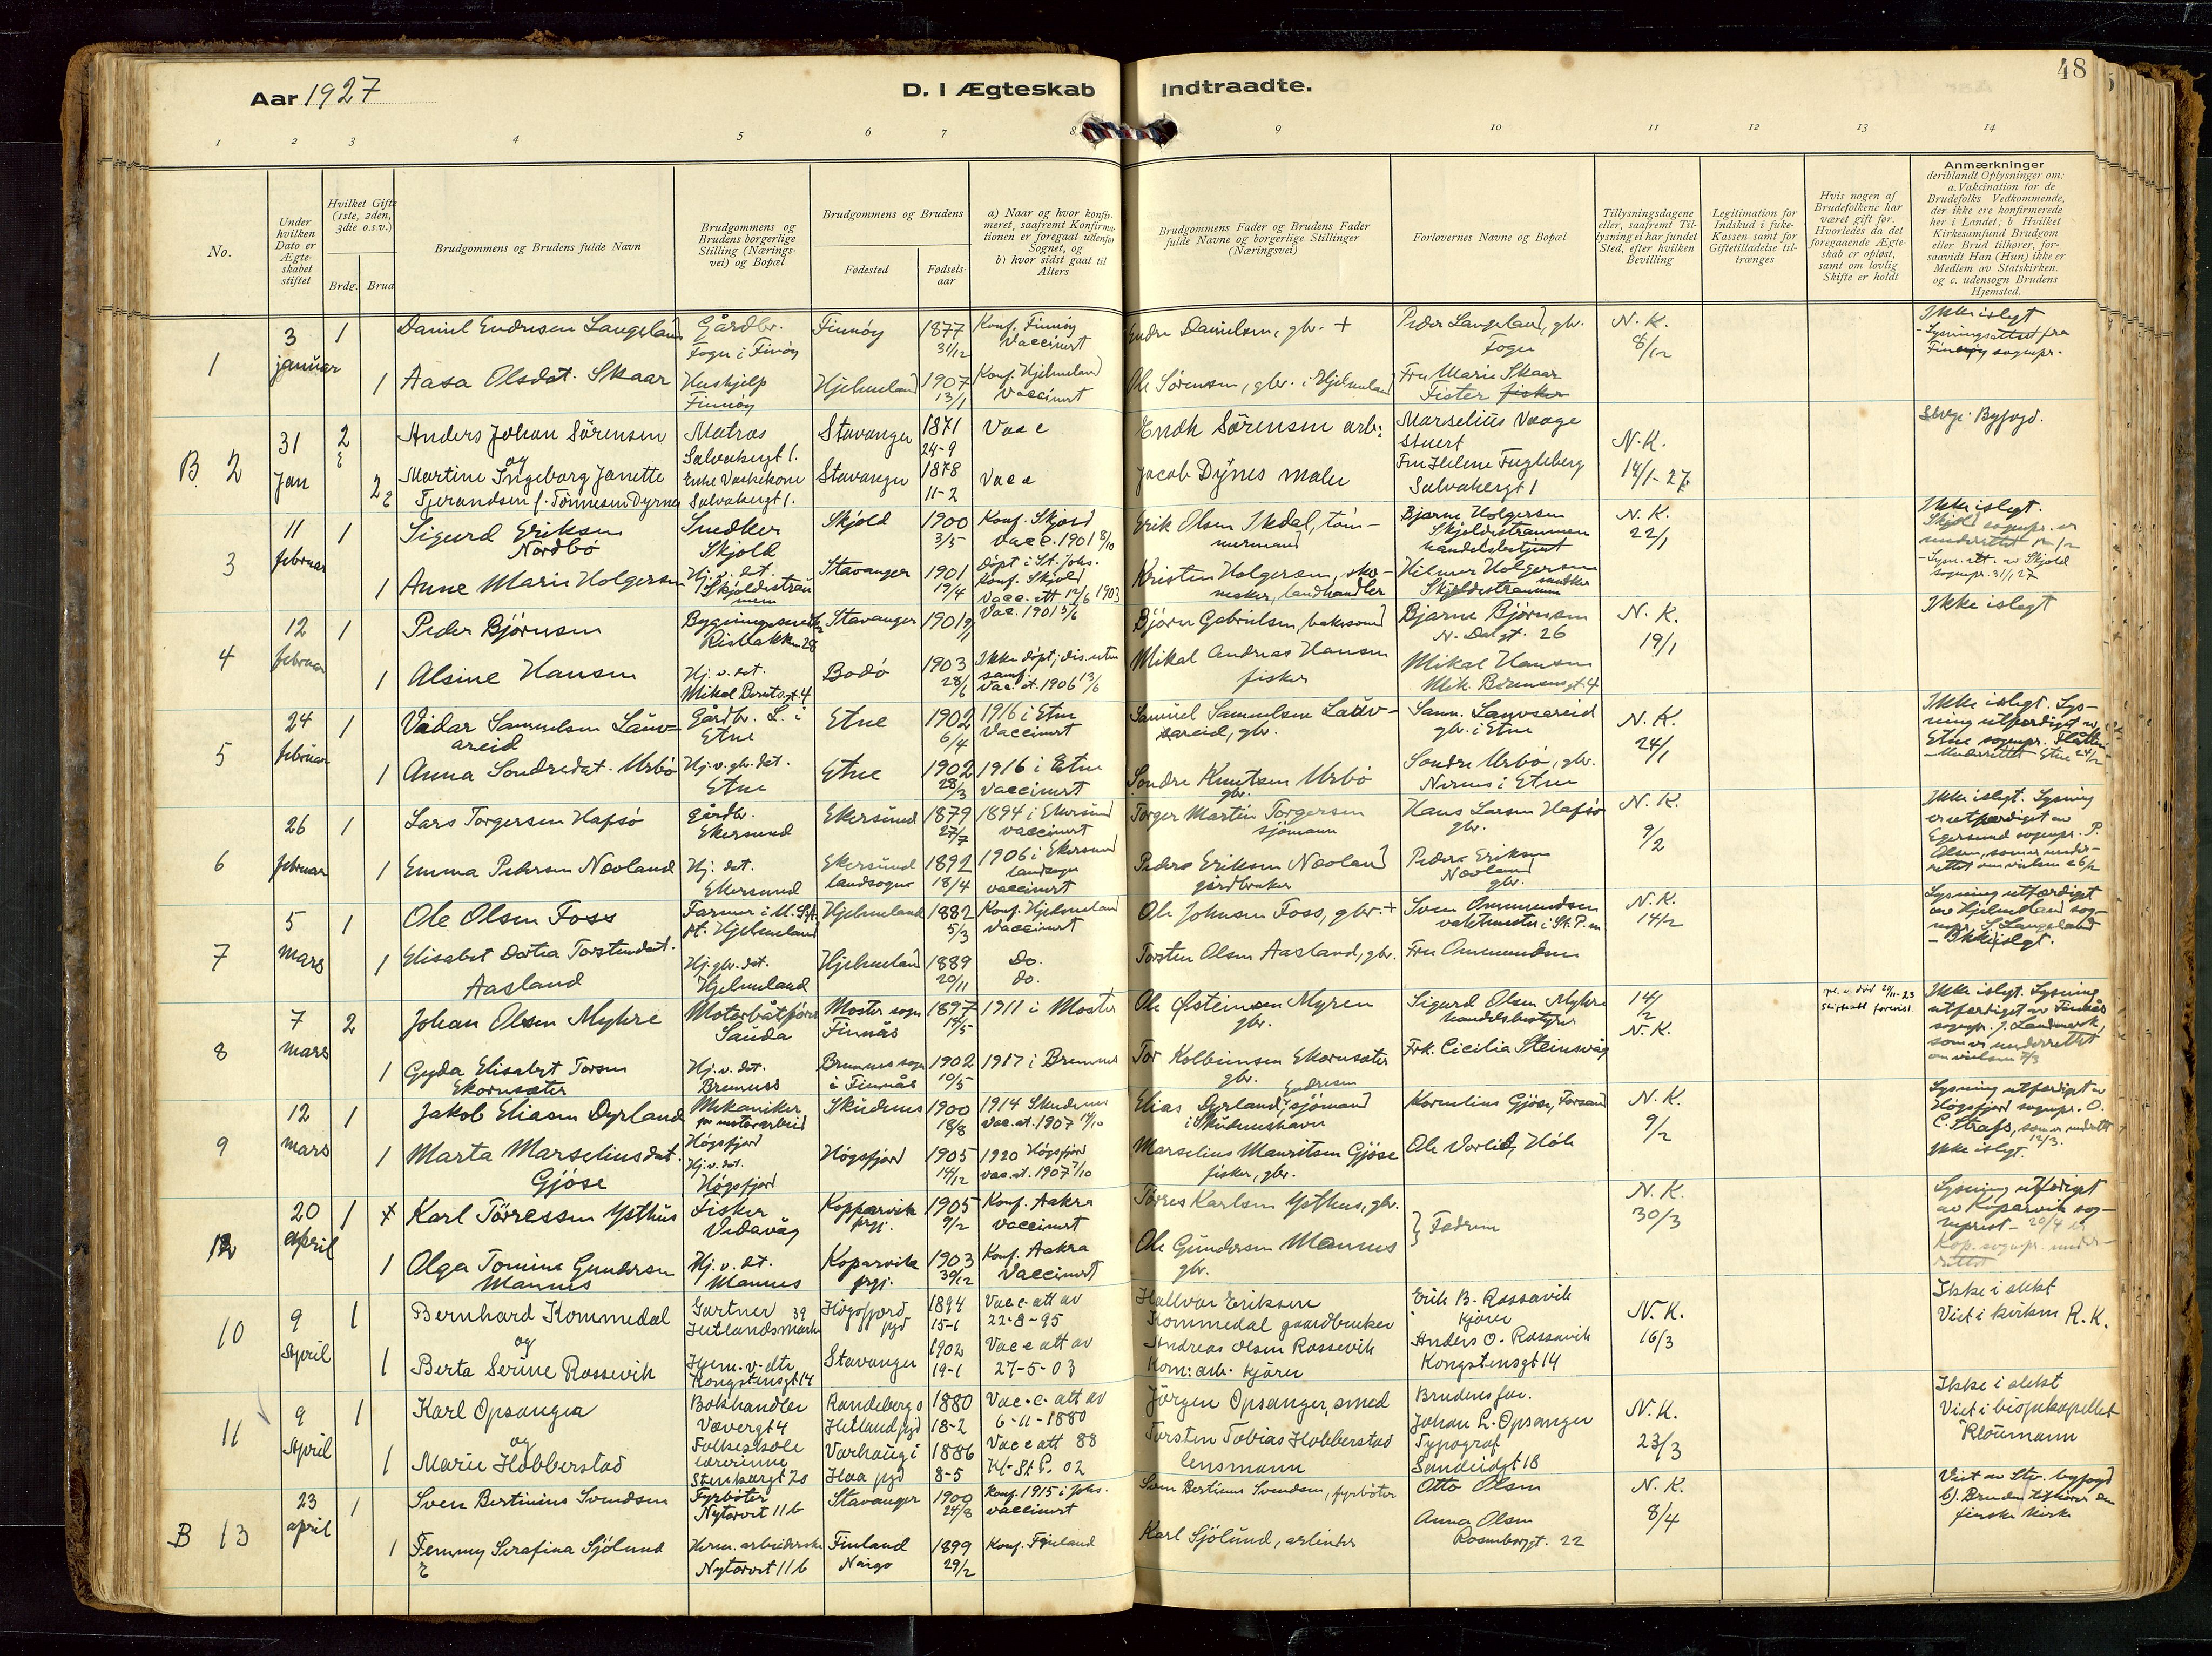 48
Aar 1927
D. I Ægteskab Indtraadte.
1 2 3 4 5 6 7 8 9 10 11 12 13 14
No.
Under hvilken Dato er Ægteskabet stiftet
Hvilket Gifte (1ste, 2den, 3die o.s.v.)
Brdg. Brud
Brudgommens og Brudens fulde Navn
Brudgommens og Brudens borgerlige Stilling (Næringsvei) og Bopæl
Brudgommens og Brudens
Fødested
Fødselsaar
a) Naar og hvor konfirmeret, saafremt Konfirmationen er foregaat utenfor Sognet, og
b) hvor sidst gaat til Alters
Brudgommens Fader og Brudens Fader fulde Navne og borgerlige Stillinger (Næringsvei)
Forlovernes Navne og Bopæl
Tillysningsdagene eller, saafremt Tillysning ei har fundet Sted, efter hvilken Bevilling
Legitimation for Indskud i fuke-Kassen samt for Giftetilladelse tiltrænges
Hvis nogen af Brudefolkene har været gift før. Hvorledes da det foregaaende Ægteskab er opløst, samt om lovlig Skifte er holdt
Anmærkninger
deriblandt Oplysninger om: a. Vakcination for de Brudefolks Vedkommende, der ikke ere konfirmerede her i Landet; b Hvilket Kirkesamfund Brudgom eller Brud tilhører, forsaavidt Han (Hun) ikke er Medlem av Statskirken. og c. udensogn Brudens Hjemsted.
1 3 januar 1 Daniel Endresen Langeland Gårdbr. Fogn i Finnöy Finnöy 1877 31/12 Konf. Finnöy Vaccinert Endre Danielsen, gbr. + Peder Langeland, gbr. Fogn N. K. 8/12 Ikke islegt
- Lysningsattest fra Finnöy sognepr.
1 Aasa Olsdat. Skaar Hushjelp Finnöy Hjelmeland 1907 13/1 Konf. Hjelmeland Vaccinert Ole Sørensen, gbr. i Hjelmeland Fru Marie Skaar Fister fisker
B. 2 31 Jan 2 Anders Johan Sörensen Matros Salvabergt 1. Stavanger 1871 24-9 Vacc Sörensen arb: Marselius Vaage Stuert N. K. 14/1-27 Byfogd.
og
2 Martine Ingeborg Janette Tjerandsen f. Tönnesen Dyrnes Enke Vaskekone Salvabergt 1. Stavanger 1878 11-2 Vacc Jacob Dÿnes maler Fru Helene Fugleberg Salvabergt 1
3 11 februar 1 Sigurd Eriksen Nordbö Snedker Skjold Skjold 1900 3/5 Konf. Skjold Vacc. 1901 8/10 Erik Olsen Ikdal, tömmermand Bjarne Holgersen Skjoldestraumen handelsbetjent N. K. 22/1 Ikke islegt.
Skjold sognepr. er underrettet
- Lysn. att. av Skjold sognepr. 31/1 27
1 Anne Marie Holgersen Hj. v. det. Skjoldestraumen Stavanger 1901 19/4 döpt i St. Johs. Konf. Skjold Vacc. att 12/6 1903 Kristen Holgersen, skomaker, landhandler Hilmer Holgersen snedker Skjoldestraumen
4 12 februar 1 Peder Björnsen Bygningssnedker Risbakken 28 Stavanger 1901 Vac. 1901 5/6 Björn Gabrielsen, baksmand Bjarne Björnsen N. Dalgt. 26 N. K. 19/1 Ikke islegt
1 Alsine Hansen Hj. v. det. Mikal Berntsgt. 4 Bodö 1903 28/6 Ikke döpt; dis. uten samf. Vac. at. 1906 13/6 Mikal Andreas Hansen fisker Mikal Hansen Mik. Berensensgt. 4
5 24 februar 1 Vidar Samuelsen Lauvareid Gårdbr. L. i Etne Etne 1902 6/4 1916 i Etne Vaccinert Samuel Samuelsen Lauvareid, gbr. Sam. Lauvsareid gbr. i Etne N. K. 24/1 Ikke islegt. Lysning utfærdiget av Etne sognepr. Flåtten
- Underrettet Etne 24/2
1 Anna Sondredat. Urbö Hj. v. gbr. dat. Etne Etne 1902 28/3 1916 i Etne Vaccinert Sondre Knutsen Urbö gbr. Sondre Urbö, gbr. Nernes i Etne
6 26 februar 1 Lars Torgersen Hafsö gårdbr. Ekersund Ekersund 1879 27/7 1894 i Ekersund vaccinert Torger Martin Torgersen sjömann Hans Larsen Hafsö gbr. N. K. 9/2 Ikke islegt. Lysning er utfærdiget av Egersund sognepr. P. Olsen, som er underrettet om vielsen 26/2
1 Emma Pedersen Nævland Hj. det. Ekersund Ekersund landsogn 1892 18/4 1906 i Ekersund landsogn vaccinert Peder Eriksen Nævland gårdbruker Peder Eriksen Nævland gbr.
7 5 Mars 1 Ole Olsen Foss Farmer i U. S. A. pt. Hjelmeland Hjelmeland 1882 5/3 Konf. Hjelmeland Vaccinert Ole Johnsen Foss, gbr. + Sven Ommundsen vaktmester i St. P. m N. K. 14/2 Lysning utfærdiget av Hjelmeland sognepr. S. Langeland
- Ikke islegt.
1 Elisabet Dortea Torstendat. Aasland Hj. gbr. dat. Hjelmeland Hjelmeland 1889 20/11 Do. do. Torsten Olsen Aasland, gbr. Fru Ommundsen
8 7 Mars 2 Johan Olsen Myhre Motorbåtförer Sauda Moster sogn Finnås 1897 14/5 1911 i Moster Ole Østeinsen Myren gbr. Sigurd Olsen Myhre handelsbestyrer 14/2 N. K. Ikke islegt. Lysning utfærdiget av Finnås sognepr. J. Landmark, som er underrettet om vielsen 7/3
1 Gyda Elisabet Torsen Ekornsæter Hj. v. det. Bremnes Bremnes sogn i Finnås 1902 10/5 1917 i Bremnes Tor Kolbeinsen Ekornsæter gbr. Frk. Cicilia Steinsvåg
9 12 Mars 1 Jakob Eliasen Dyrland Mekaniker for motorarbeid Högsfjord Skudenes 1900 18/8 1914 Skudenes Vac. at. 1907 14/10 Elias Endresen Dyrland, sjömand i Skudeneshavn Kornelius Gjöse, Forsand N. K. 9/2 Lysning utfærdiget av Högsfjord sognepr. O. C. Strafs, som er underrettet 12/3.
Ikke islegt.
1 Marta Marseliusdat. Gjöse Hj. v. det. Högsfjord Högsfjord 1905 14/12 1920 Högsfjord Vac. at. 1907 7/10 Marselius Mauritsen Gjöse fisker, gbr. Ole Höle
12 20 april 1 Karl Törressen Ysthus Fisker Vedavåg Kopparvik prgj. 1905 9/2 Konf. Aakra Vaccinert Törres Karlsen Ysthus, gbr. } Fedrene N. K. 30/3 Lysning utfærdiget av Koparvik sogneprest - 20/4 er Kop. sognepr. underrettet
1 Olga Tomine Gundersen Mannes Hj. v. det. Mannes Koparvik prgj. 1903 30/12 Konf. Aakra Vaccinert Ole Gundersen Mannes gbr.
10 9 April 1 Bernhard Kommedal Gartner Jutlandsmarken 39 Högsfjord pgd 1894 15-1 Vacc. att av 22-8-95 Hallvar Eriksen Kommedal gaardbruker Erik B. Rossavik kjörer N. K. 16/3 Ikke i slekt
Viet i kirken R. K.
og
1 Berta Serine Rossevik Hjem. v. dtr Kongstensgt 14 Stavanger 1902 19-1 Vacc att av 27-5-03 Andreas Olsen Rossevik Kom: arb. kjörer Anders O. Rossavik Kongstensgt 14
11 9 April 1 Karl Opsanger Bokhandler Vævergt 4 Randebergs Hetland pgd 1880 18-2 Vac. c. att av 6-11-1880 Jörgen Opsanger, smed Brudens far. Johan L. Opsanger Typograf Sandeidgt 18 N. K. 23/3 Ikke i slekt
Viet i bispekapellet
og
1 Marie Hobberstad Folkeskole lærerinne Stenbergt 20 Varhaug i Haa pgd 1886 8-5 Vacc att 88 Kf. St P. 02 Torsten Tobias Hobberstad lensmann
B 13 23 april 1 Sven Bertinius Svendsen Fyrböter Nytorvet 11 b Stavanger 1900 24/8 Konf. 1915 i Johs. vaccinert Sven Bertinus Svendsen, fyrböter Otto Olsen N. K. 8/4 Viet av Stv. byfogd
b). Bruden tilhörer den finske kirke
1 Femmy Serafina Sjölund Herm. arbeiderske Nytorvet 11 b Finland Närgo 1899 29/2 Konf. Finland Karl Sjölund, arbeider Anna Olsen Rosenborggt. 22